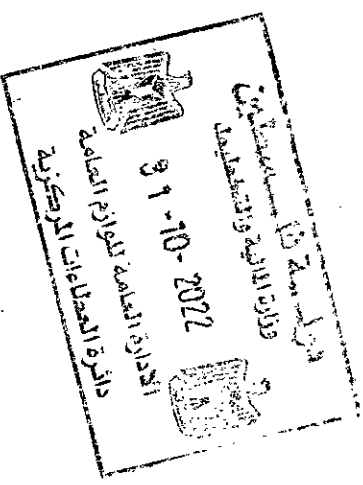 دولة فلسطين
وزارة المالية والتخطيط
31-10-2022
الادارة العامة للوازم العامة
دائرة العطاءات المركزية